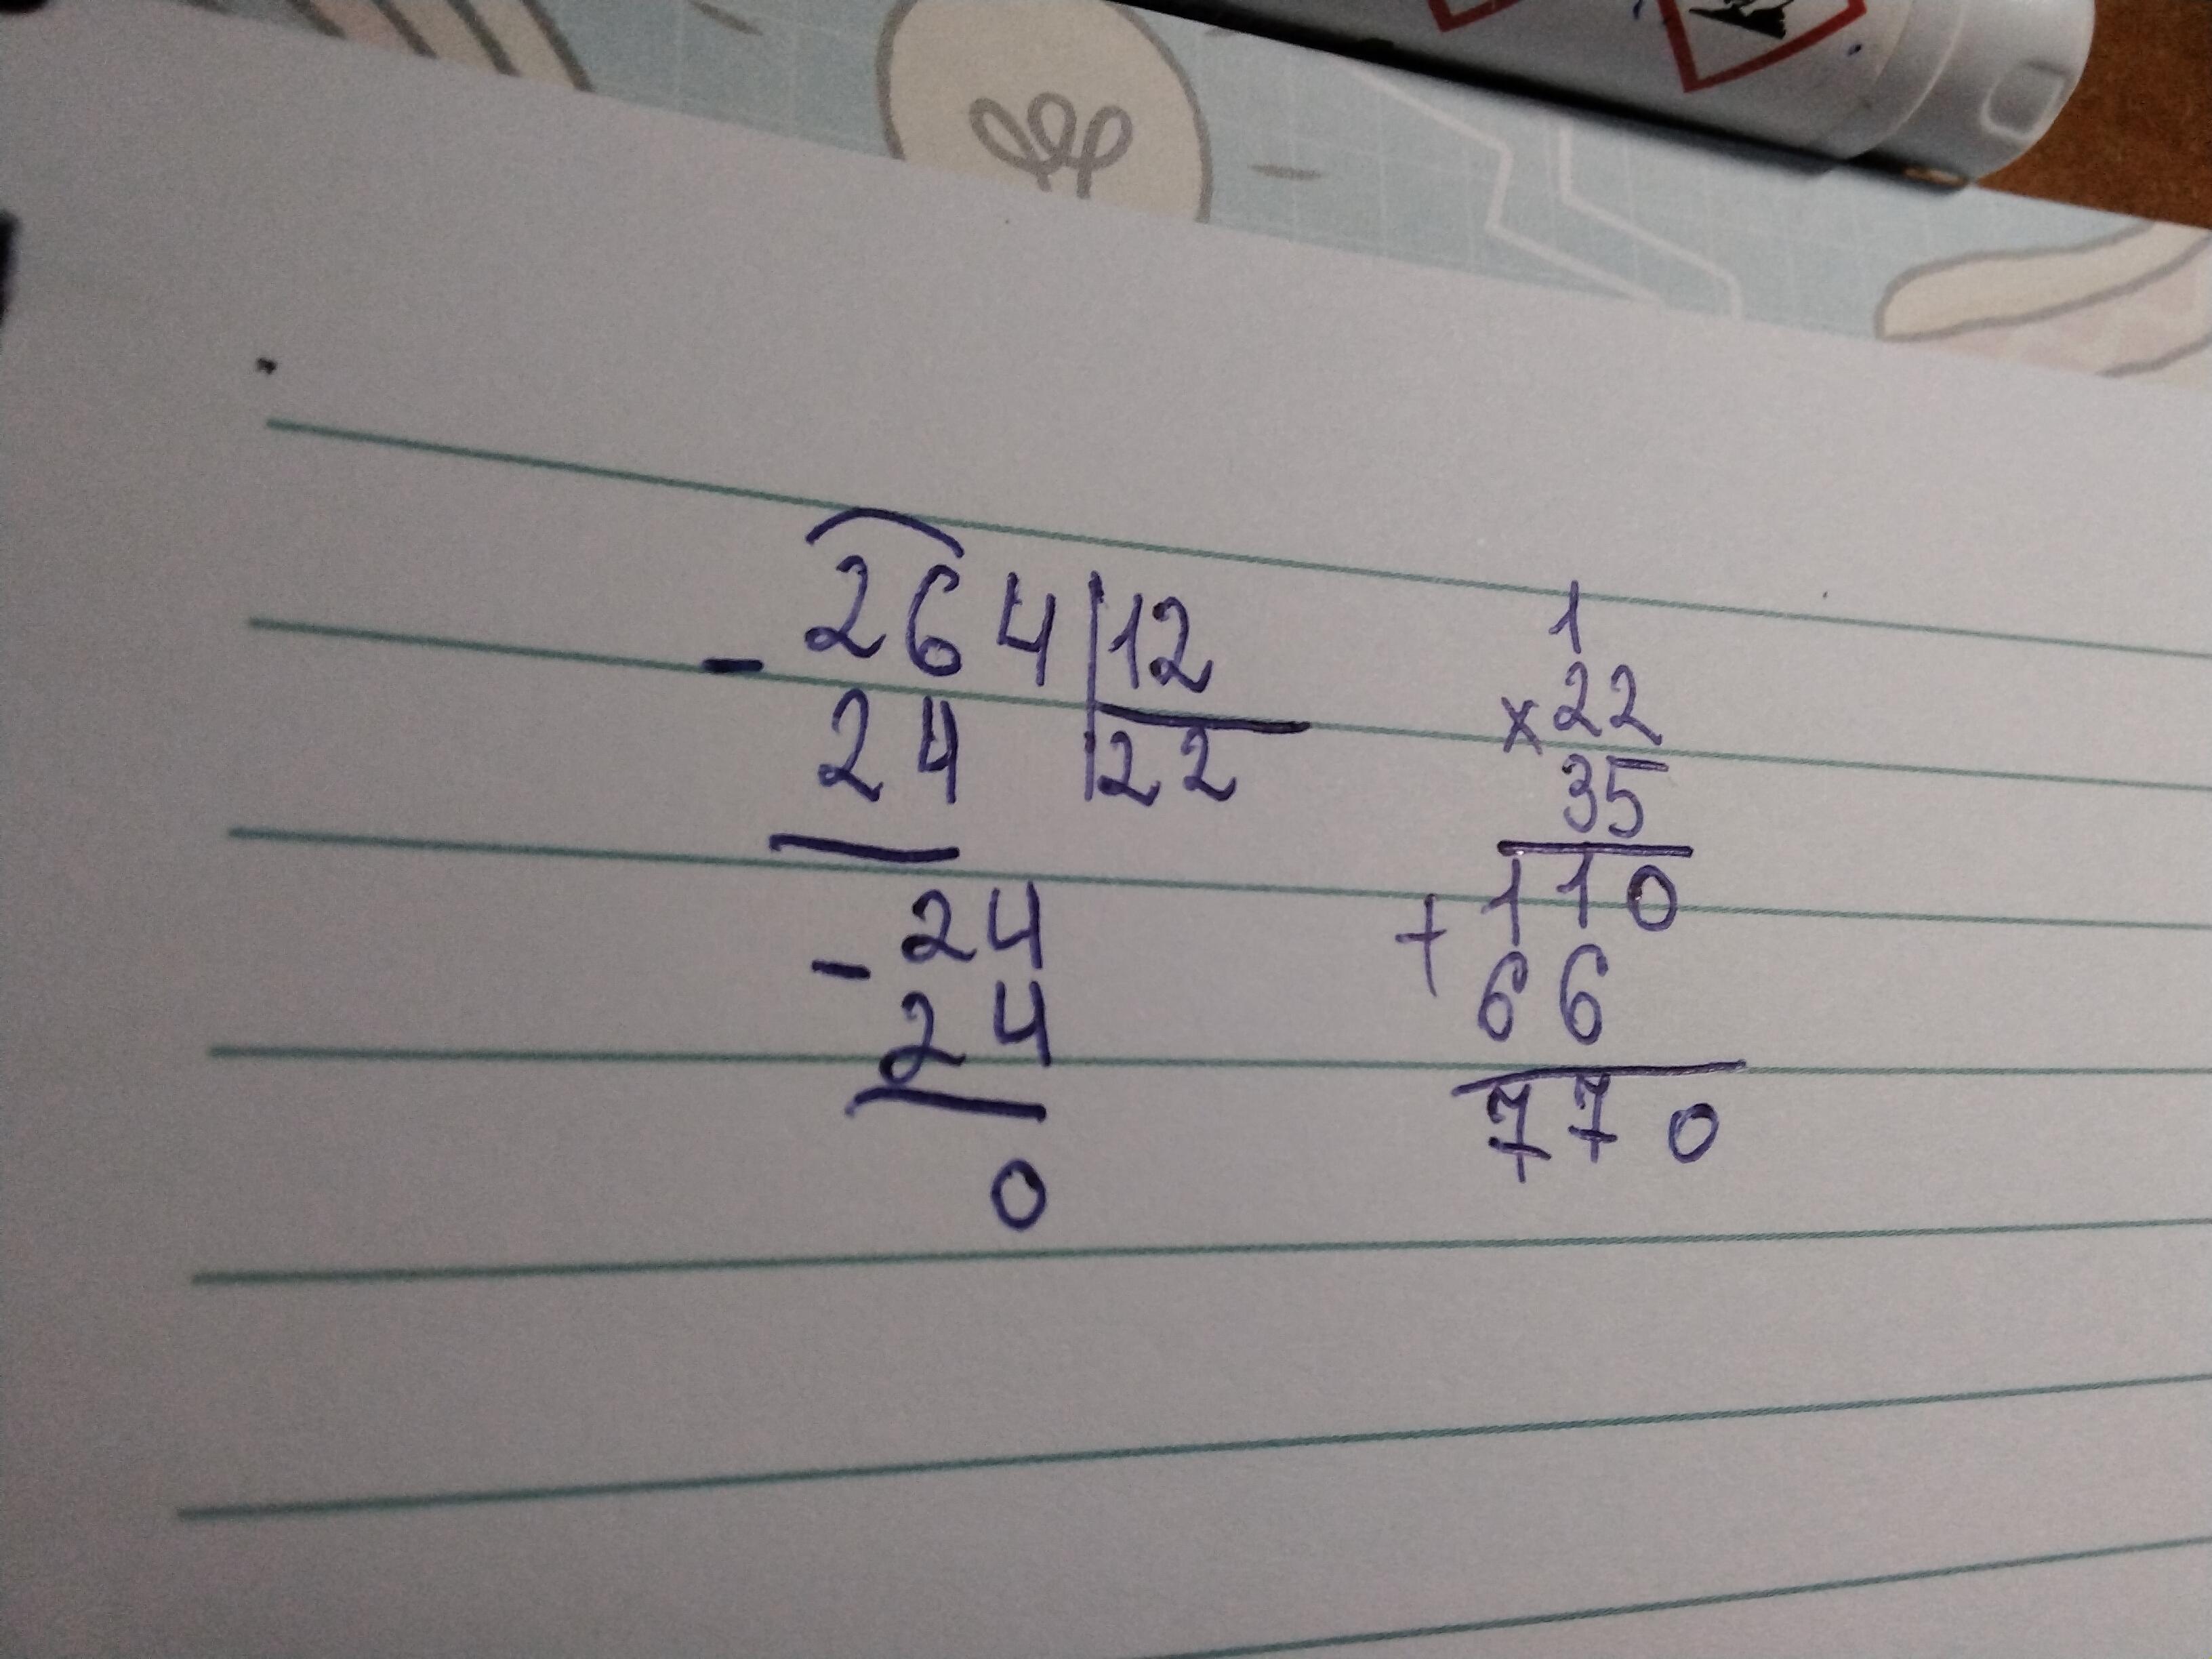 264|12
- 24 |22
24
- 24
0
1
x 22
35
+ 110
66
770